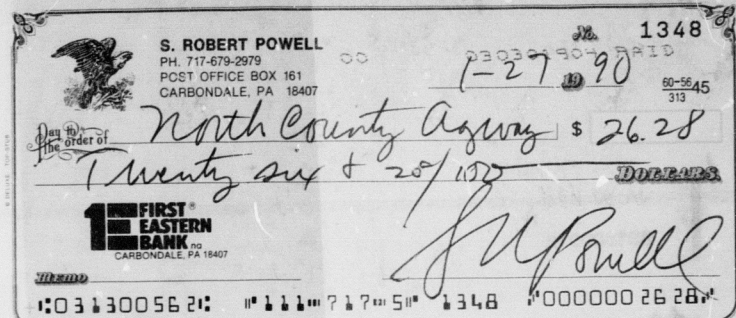 No. 1348
S. ROBERT POWELL
PH. 717-679-2979
POST OFFICE BOX 161
CARBONDALE, PA 18407
030301904 PAID
1-27 19 90
60-56 45
313
Pay to the order of North County Agway $ 26.28
Twenty six & 28/100 DOLLARS
1E FIRST EASTERN BANK na
CARBONDALE, PA 18407
S R Powell
MEMO
⑆031300562⑆ ⑈111⑉717⑉5⑈ 1348 ⑈0000002628⑈